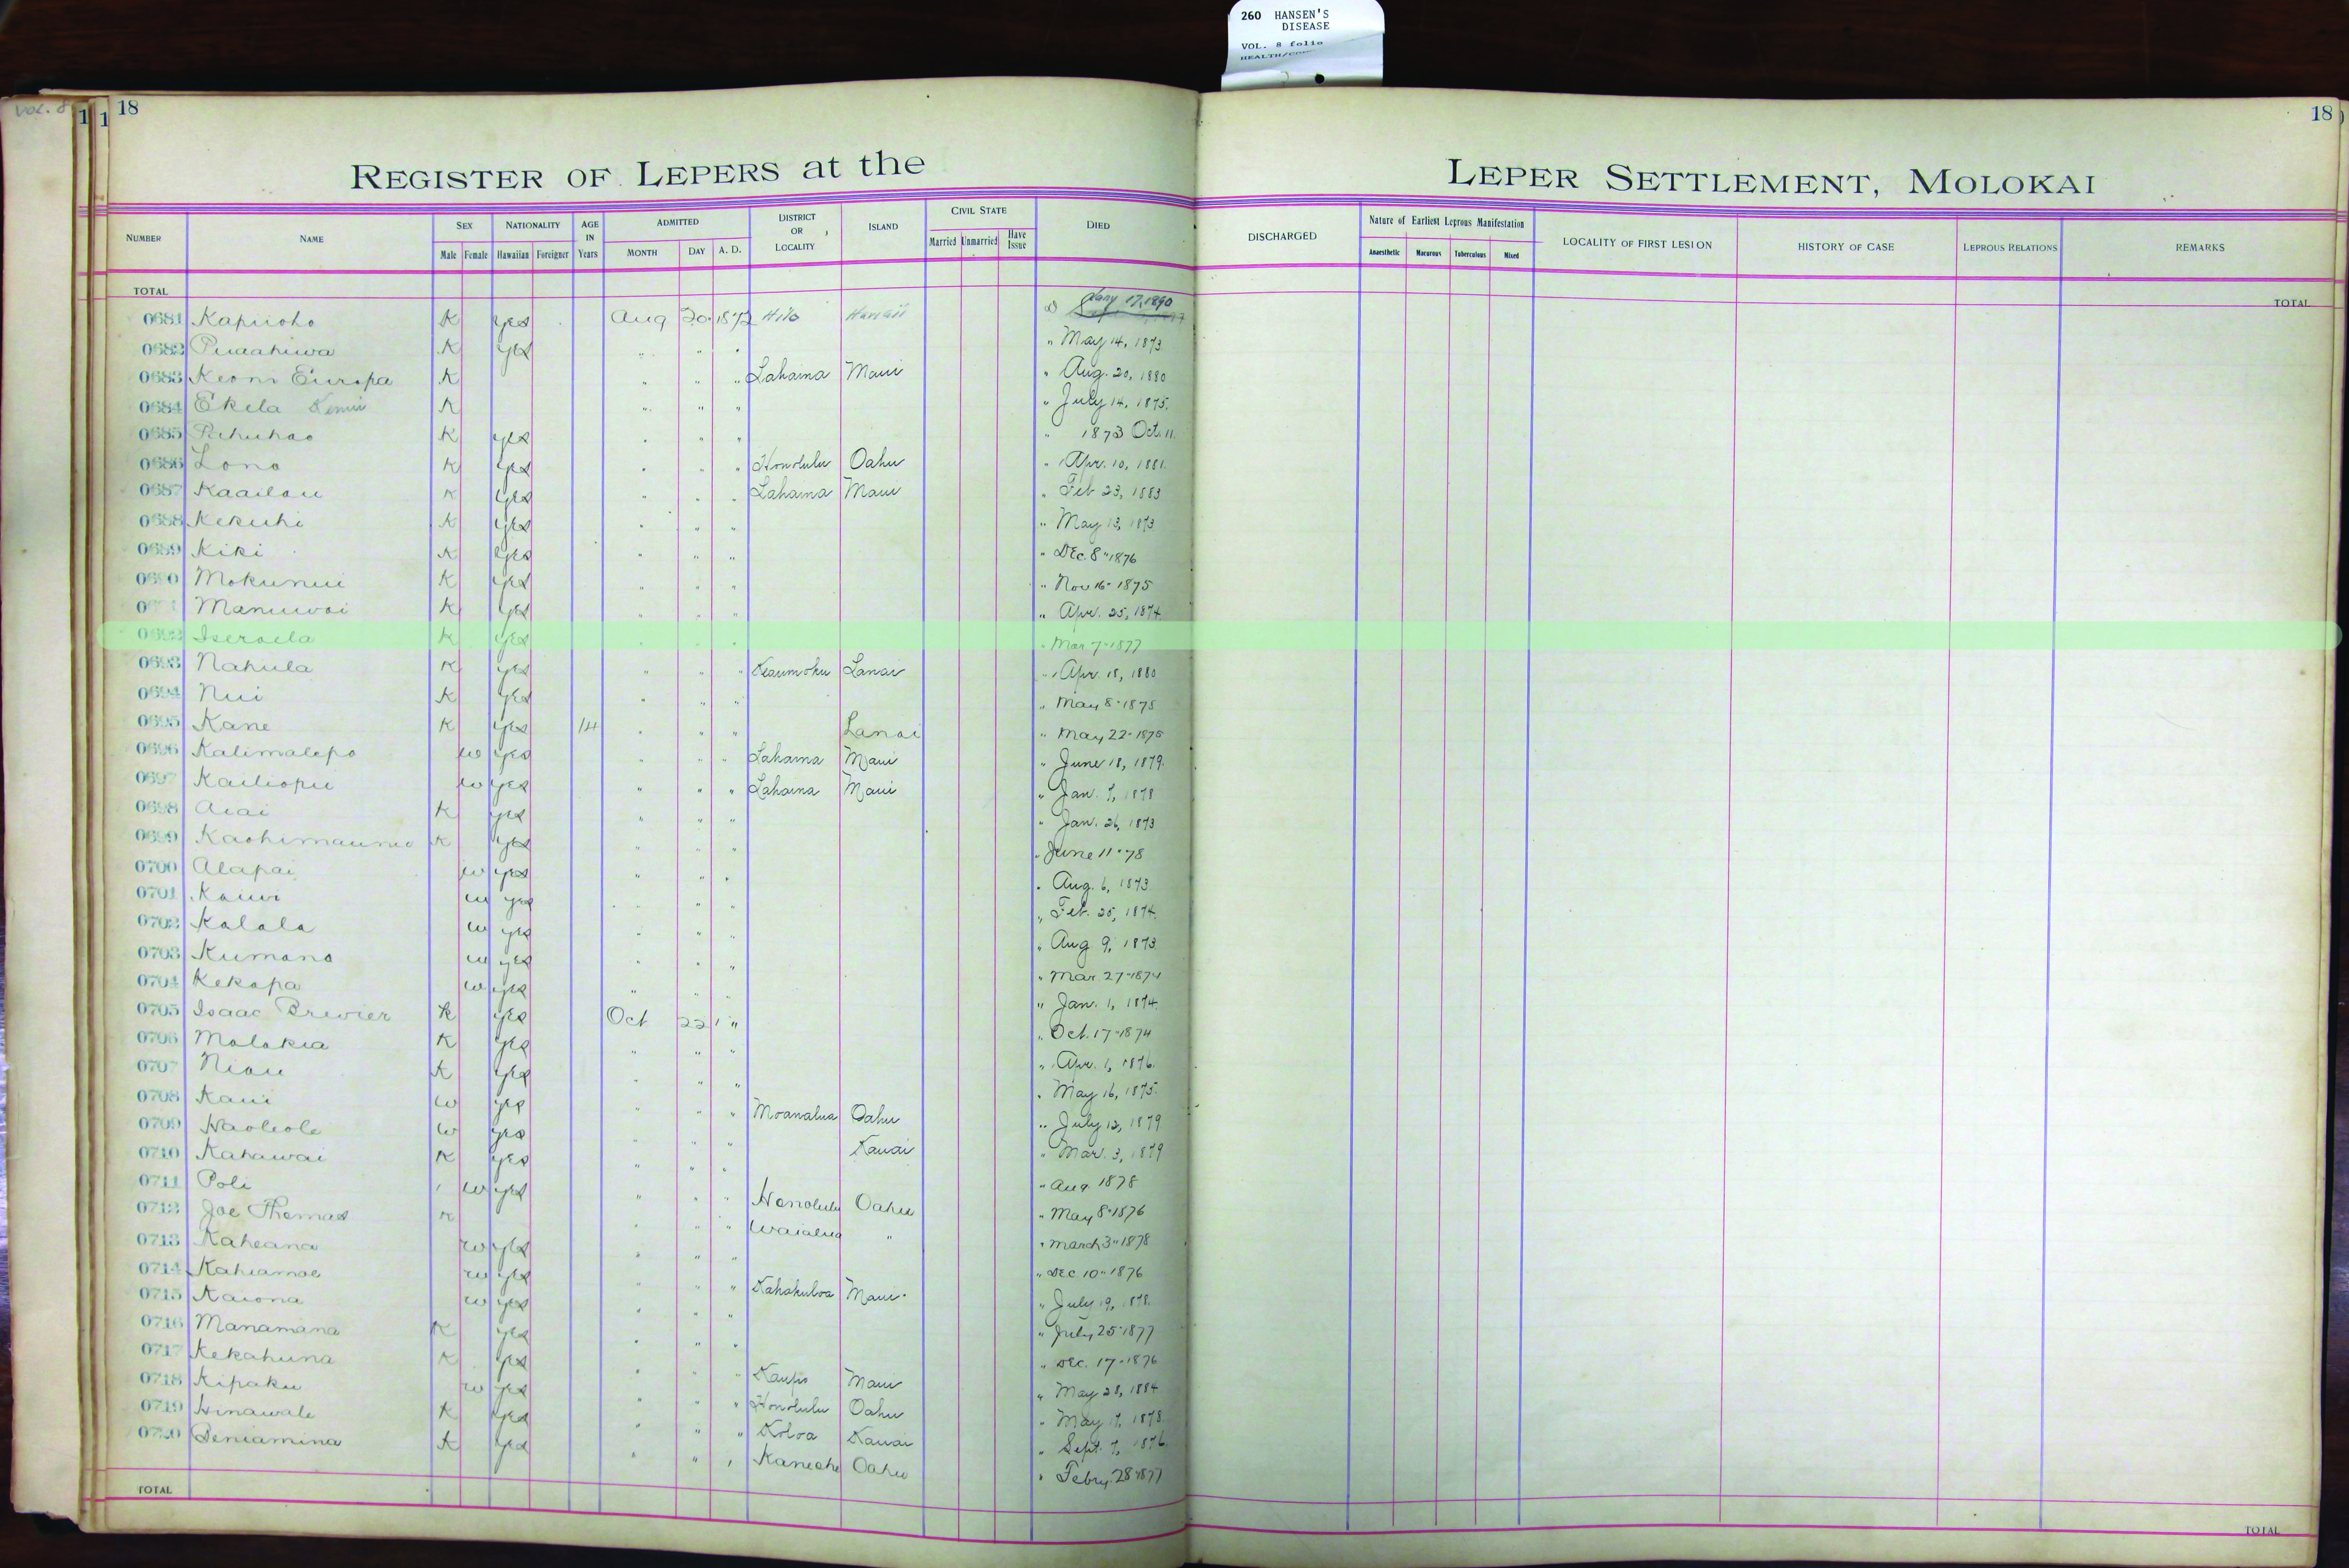 260 HANSEN'S
DISEASE
VOL. 8 folio
VOL. 8
1 1 18
18
REGISTER OF LEPERS at the LEPER SETTLEMENT, MOLOKAI
NUMBER NAME SEX Male Female NATIONALITY Hawaiian Foreigner AGE IN Years ADMITTED MONTH DAY A. D. DISTRICT OR LOCALITY ISLAND CIVIL STATE Married Unmarried Have Issue DIED DISCHARGED Nature of Earliest Leprous Manifestation Anaesthetic Tuberculous Mixed LOCALITY OF FIRST LESION HISTORY OF CASE LEPROUS RELATIONS REMARKS
TOTAL TOTAL
0681 Kapuoho K yes Aug 20 1872 Hilo Hawaii Jany 17, 1890
0682 Puaahiwa K yes " " " " May 14, 1873
0683 Keoni Europa K " " " Lahaina Maui " Aug. 20, 1880
0684 Ekela K " " " " July 14, 1875.
0685 Pahuhao K yes " " " " 1873 Oct. 11.
0686 Lono K yes " " " Honolulu Oahu " Apr. 10, 1881.
0687 Kaailau K yes " " " Lahaina Maui " Feb 23, 1883
0688 Kekuhi K yes " " " " May 13, 1873
0689 Kiki K yes " " " " Dec. 8 " 1876
0690 Mokunui K yes " " " " Nov 16 - 1875
Manuwai K yes " " " " Apr. 25, 1874.
0692 Iseraela K yes " " " " Mar 7 - 1877
0693 Nahula K yes " " " Keaumoku Lanai " Apr. 18, 1880
0694 Nui K yes " " " " May 8 - 1875
0695 Kane K yes 14 " " " Lanai " May 22 - 1875
0696 Kalimalepo w yes " " " Lahaina Maui " June 18, 1879.
0697 Kailiopu w yes " " " Lahaina Maui " Jan. 7, 1878
0698 Aiai K yes " " " " Jan. 26, 1873
0699 K yes " " " " June 11 " 78
0700 Alapai w yes " " " " Aug. 6, 1873
0701 Kauwi w yes " " " " Feb. 25, 1874.
0702 Kalala w yes " " " " Aug 9, 1873.
0703 Kumano w yes " " " " Mar 27 - 1874
0704 Kekapa w yes " " " " Jan. 1, 1874.
0705 Isaac Brewier K yes Oct 22 " " Oct. 17 - 1874
0706 Molokia K yes " " " " Apr. 1, 1876.
0707 Niau K yes " " " " May 16, 1875.
0708 Kaui w yes " " " Moanalua Oahu " July 12, 1879
0709 Haoleole w yes " " " Kauai " Mar. 3, 1879
0710 Kahawai K yes " " " " Aug 1878
0711 Poli w yes " " " Honolulu Oahu " May 8 - 1876
0712 Joe Thomas K " " " Waialua " " March 3 " 1878
0713 Kaheana w yes " " " " Dec 10 " 1876
0714 Kahiamoe w yes " " " Kahakuloa Maui " July 19, 1878.
0715 Kaiona w yes " " " " July 25 - 1877
0716 Manamana K yes " " " " Dec. 17 - 1876
0717 Kekahuna K yes " " " Kaupo Maui " May 28, 1884
0718 Kipaku w yes " " " Honolulu Oahu " May 17, 1878.
0719 Hinawale K yes " " " Koloa Kauai " Sept. 7, 1876.
0720 Beniamina K yes " " " Kaneohe Oahu " Febry. 28 - 1877
TOTAL TOTAL